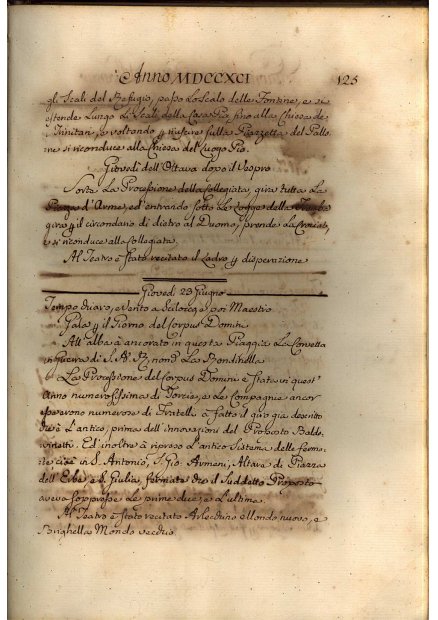 Anno MDCCXCI 125
gli Scali del Refugio, passa lo Scalo delle Fontine, e si
estende lungo li Scali della Casa Pia, fino alla Chiesa de
Trinitarj, e voltando
si riconduce alla Chiesa del Luogo Pio.
Giovedì dell'Ottava dopo il Vespro
Sorte La Processione della Collegiata, gira tutta La
Piazza d'Arme, ed entrando sotto Le Logge della
il circondario di dietro al Duomo, prende La
e si riconduce alla Collegiata.
Al Teatro è stato recitato il Ladro disperazione
Giovedì 23 Giugno
Tempo chiaro, e Vento a Scilocco, poi Maestro
Gala il Giorno del Corpus Domini
All'alba à ancorato in questa Piaggia La Corvetta
in guerra di S. M. La Rondinella
La Processione del Corpus Domini è stata in quest'
Anno numerosissima di Torcie, e Le Compagnie ancor
esse erano numerose di Fratelli à fatto il giro già
à L'antico, prima dell'innovazioni del Proposto Baldo-
vinetti. Ed inoltre à ripreso L'antico Sistema delle ferma-
te cioè in S. Antonio, S. Gio: Armeni, Altare di Piazza
dell'Erbe, e S. Giulia, fermate che il Suddetto Proposto
aveva soppresse Le prime due, e L'ultime.
Al Teatro è stato recitato Arlecchino ellondo nuovo, e
Brighella Mondo vecchio